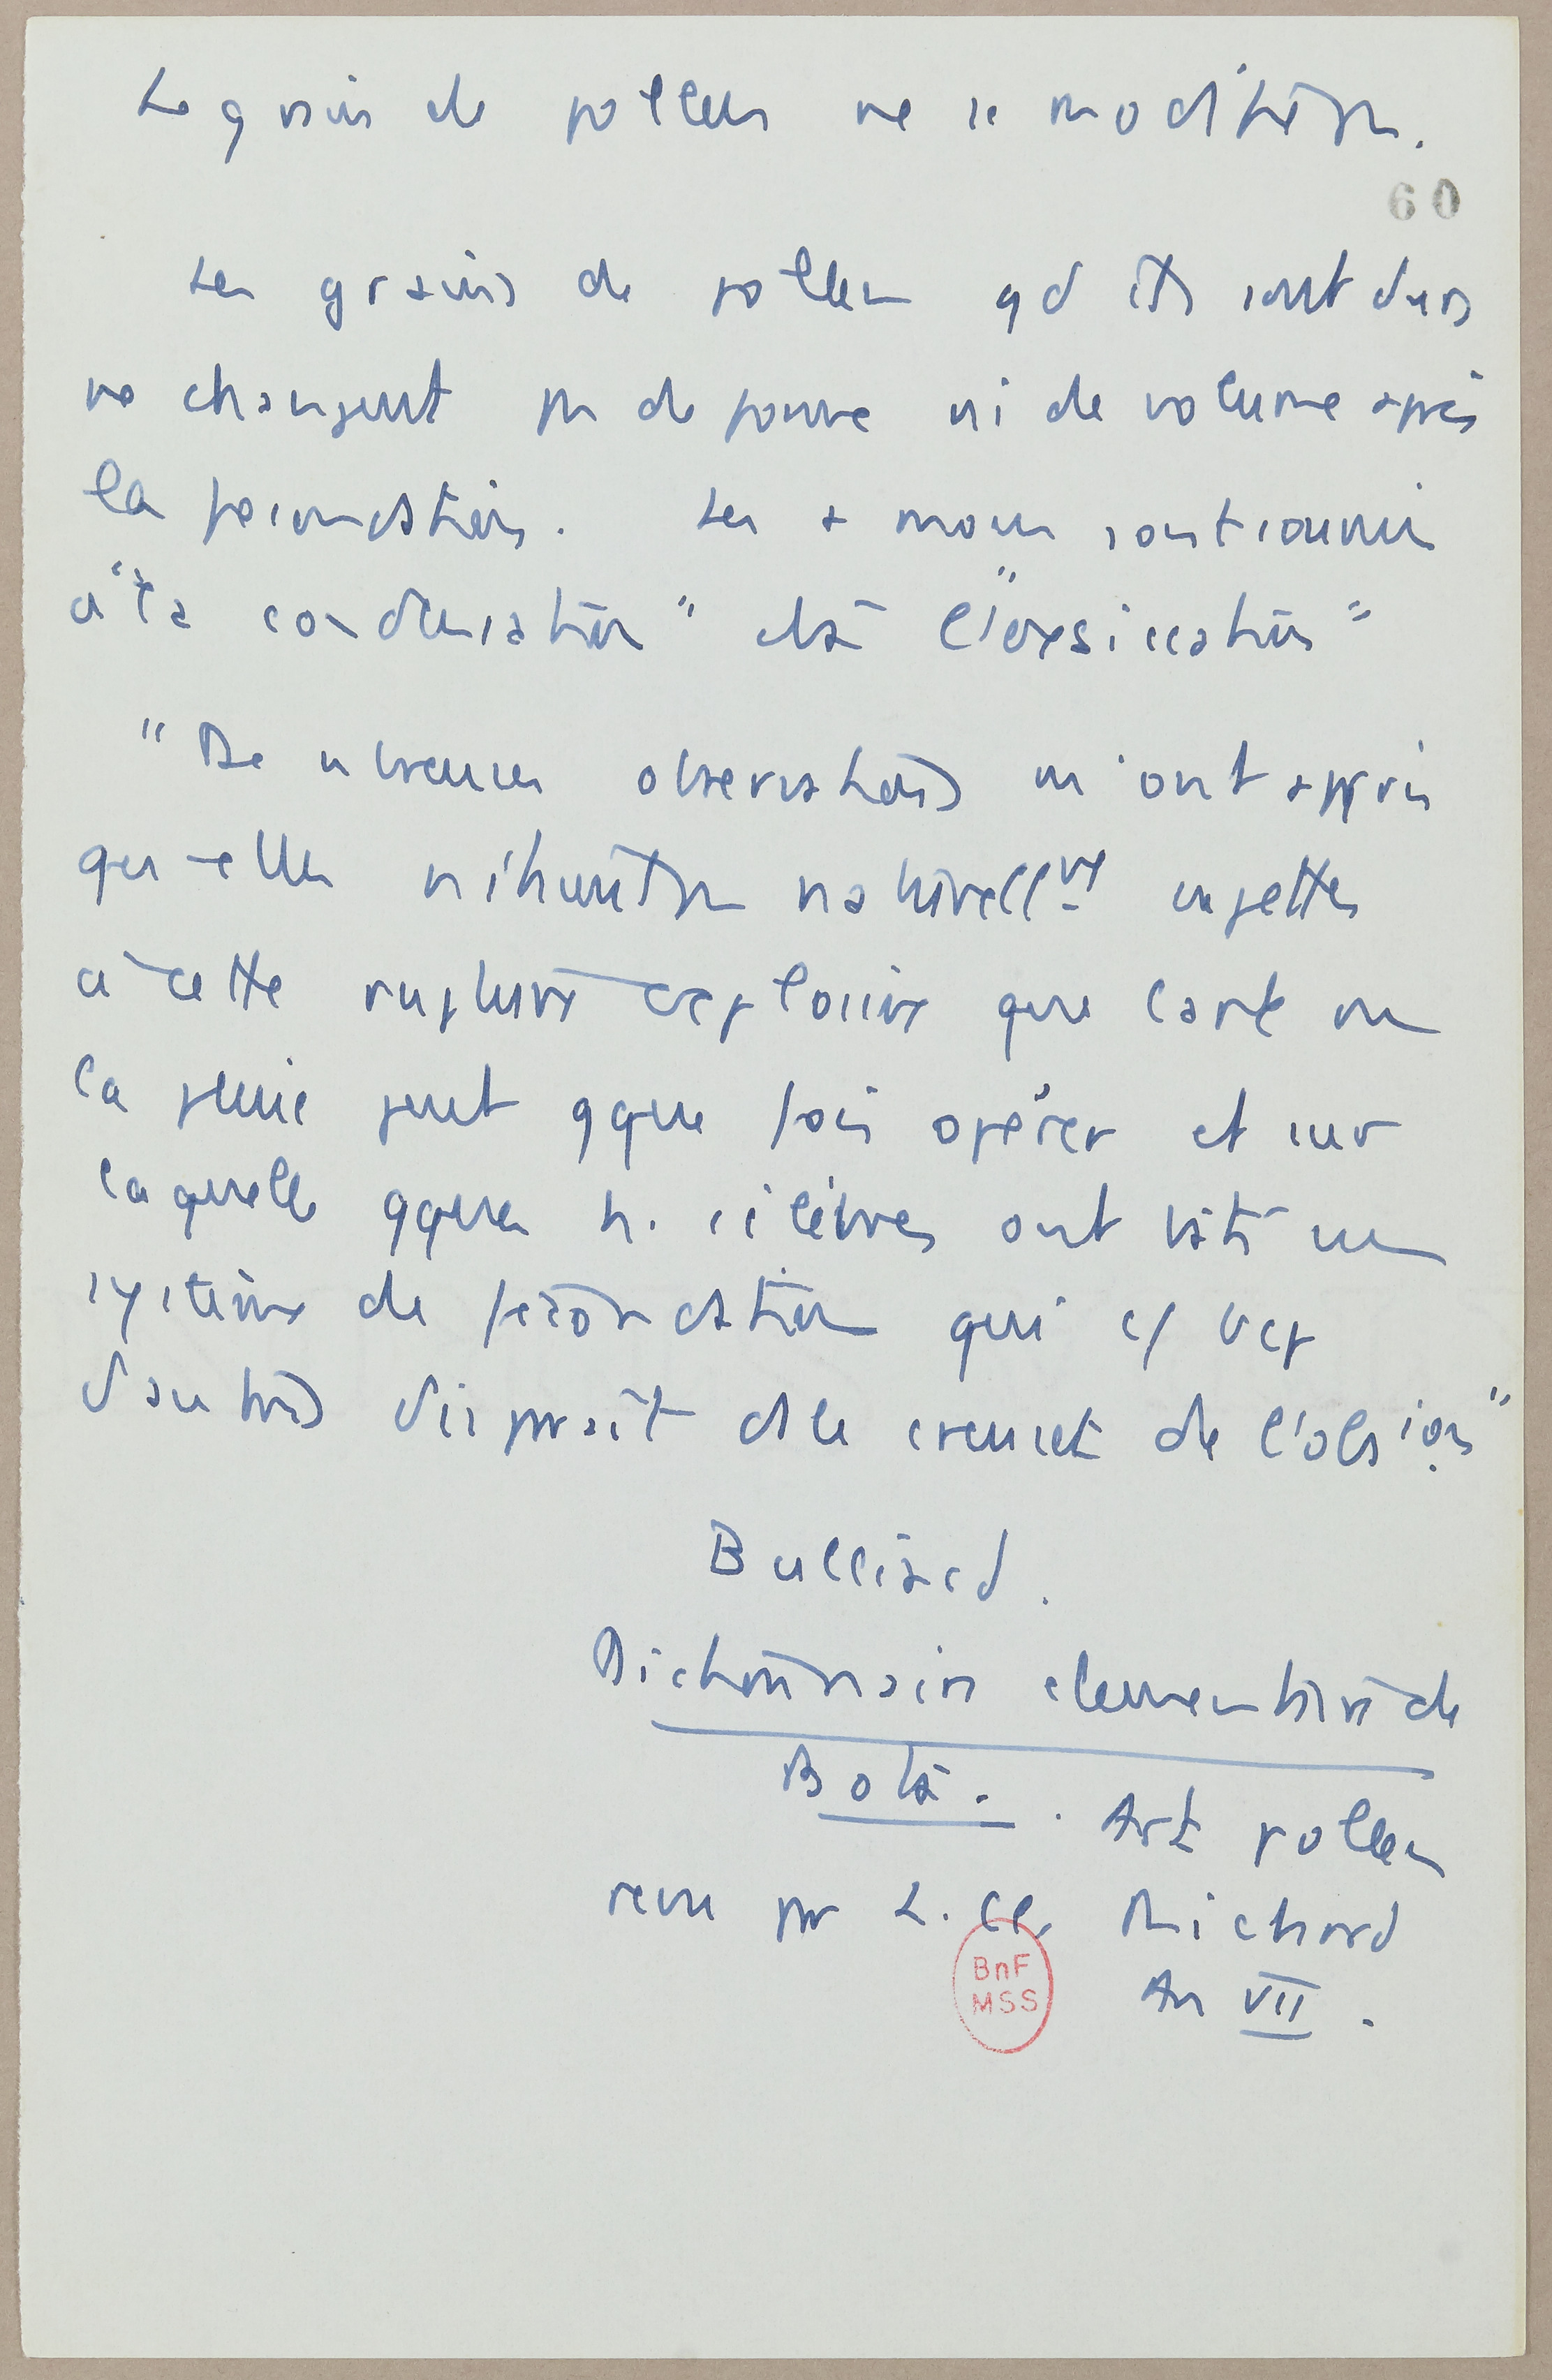 Le grain de pollen ne se modifie pas.
60
Les grains de pollen qd ils sont durs
ne changent pas de forme ni de volume après
la fécondation. Les + mous sont soumis
à "la condensation" et à "l'exsiccation"
"De nbreuses observations m'ont appris
qu'elles n'étaient pas naturellt sujettes
à cette rupture explosive que l'art ou
la pluie peut qque fois opérer et sur
laquelle qques h. célèbres ont bâti un
système de fécondation qui
disparaît de le creuset de l'obsion"
Bulliard.
Dictionnaire élémentaire de
Bota. . Art pollen
revu par L. Cl. Richard
BnF
MSS
An VII.